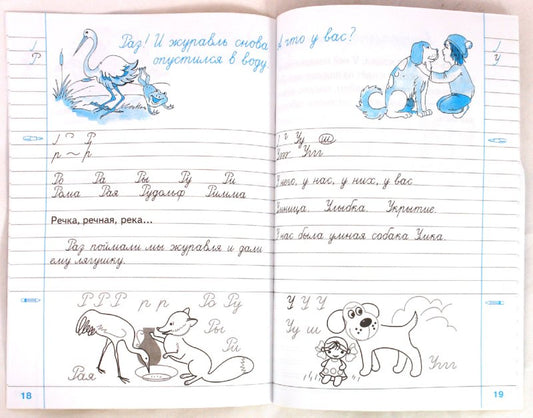 Р
Раз! И журавль снова
опустился в воду.
Р
р ~ р
Ро Ра Ры Ру Ри
Рома Рая Рудольф Римма
Речка, речная, река...
Раз поймали мы журавля и дали
ему лягушку.
Р Р Р р р Ро Ру
Ры
Ри
Рая
18
А что у вас?
У
Уу ш
Уггг Уггг
У него, у нас, у них, у вас
Умница. Улыбка. Укрытие.
У нас была умная собака Умка.
У У У
Уу ш
Уггг
19